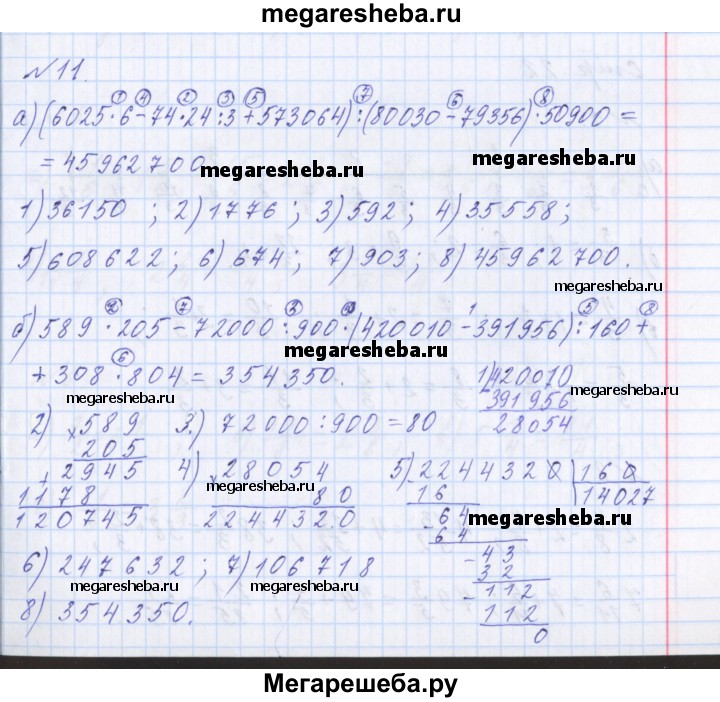 megaresheba.ru
№11.
а) (6025·6-74·24:3+573064):(80030-79356)·50900=
=45962700
1) 36150 ; 2) 1776 ; 3) 592 ; 4) 35558 ;
5) 608622 ; 6) 674 ; 7) 903 ; 8) 45962700.
б) 589·205-72000:900·(420010-391956):160+
+308·804=354350.
1) 420010
391956
28054
2) 589
× 205
+ 2945
1178
120745
3.) 72000:900=80
4) 28054
× 80
224432.0
5) 2244320 | 160
16 | 14027
- 64
64
- 43
32
- 112
112
0
6) 247632 ; 7) 106718
8) 354350.
megaresheba.ru
megaresheba.ru
megaresheba.ru
megaresheba.ru
megaresheba.ru
megaresheba.ru
megaresheba.ru
megaresheba.ru
Мегарешеба.ру